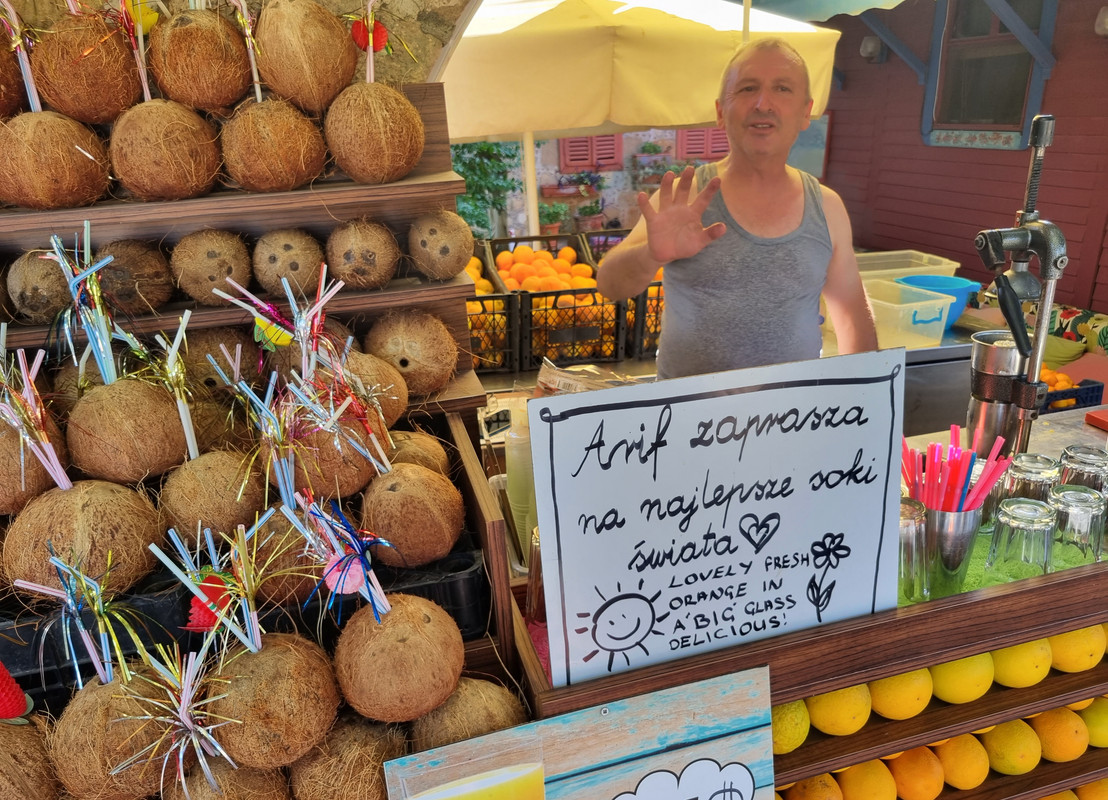 Arif zaprasza
na najlepsze soki
świata
LOVELY FRESH
ORANGE IN
A "BIG" GLASS
DELICIOUS!